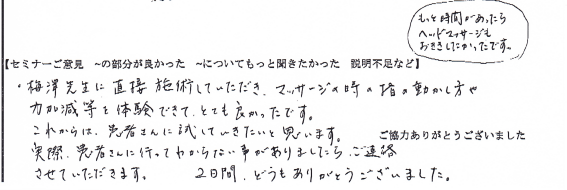 もっと時間があったら
ヘッドマッサージも
おききしたかったです。
【セミナーご意見　~の部分が良かった　~についてもっと聞きたかった　説明不足など】
・梅澤先生に直接施術していただき、マッサージの時の指の動かし方や
力加減等を体験できて、とても良かったです。
これからは、患者さんに試していきたいと思います。
ご協力ありがとうございました
実際、患者さんに行ってわからない事がありましたら、ご連絡
させていただきます。　2日間、どうもありがとうございました。